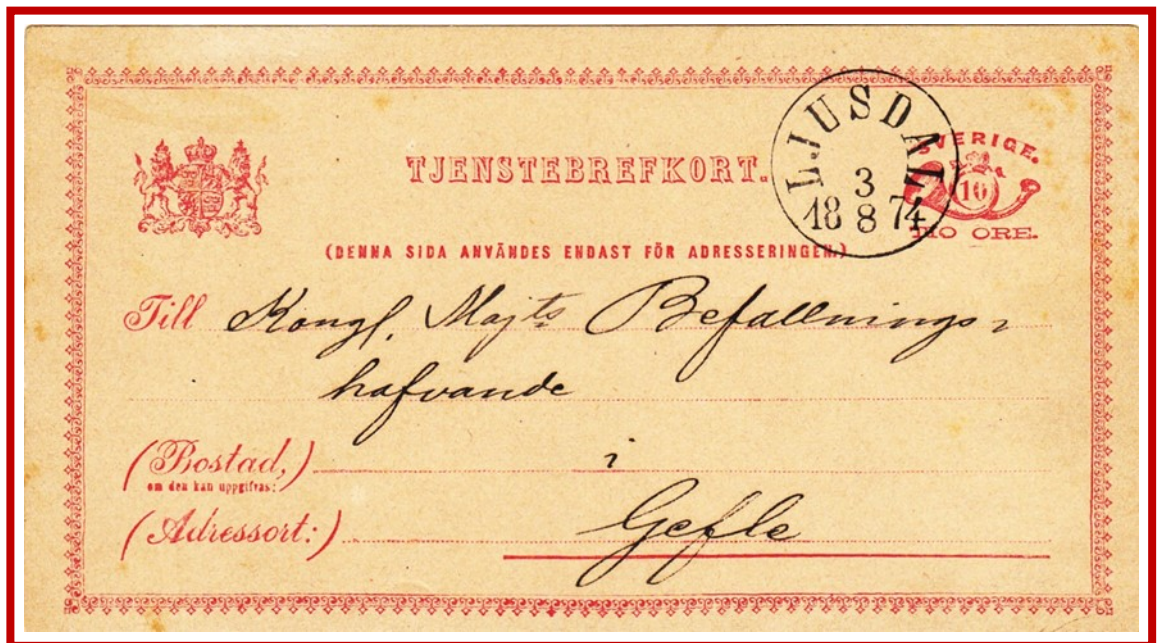 TJENSTEBREFKORT.
LJUSDAL
3
18 8 74
SVERIGE.
10
TIO ORE.
(DENNA SIDA ANVÄNDES ENDAST FÖR ADRESSERINGEN.)
Till Kongl. Majts Befallnings-
hafvande
(Bostad,) i
om den kan uppgifvas:
(Adressort:) Gefle